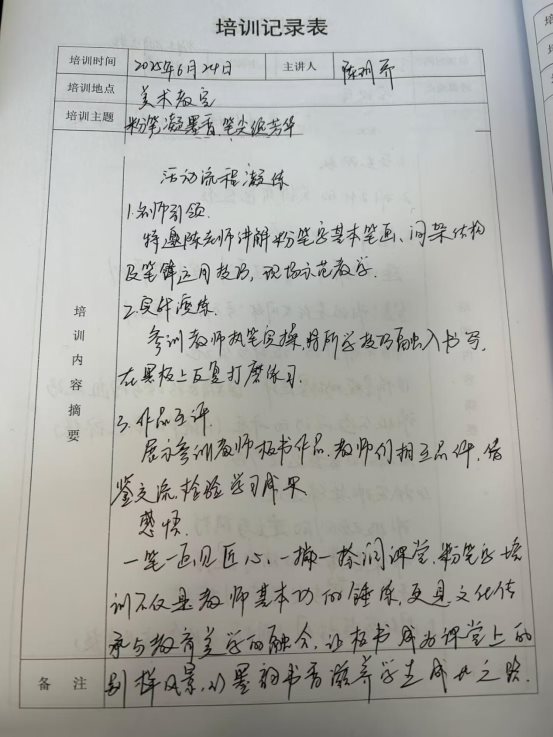 培训记录表
培训时间 2025年6月24日 主讲人 陈
培训地点 美术教室
培训主题 粉笔凝墨香,笔尖绽芳华
培训内容摘要
活动流程凝练
1.名师引领.
特邀陈老师讲解粉笔字基本笔画、间架结构
及笔锋运用技巧,现场示范教学.
2.实战演练.
参训教师执笔实操,将所学技巧融入书写,
在黑板上反复打磨练习.
3.作品互评
展示参训教师板书作品.教师们相互品评,借
鉴交流,检验学习成果
感悟.
一笔一画见匠心,一撇一捺润课堂,粉笔字培
训不仅是教师基本功的锤炼,更是文化传
承与教育美学的融合,让板书成为课堂上的
别样风景,以墨韵书香滋养学生成长之路.
备注